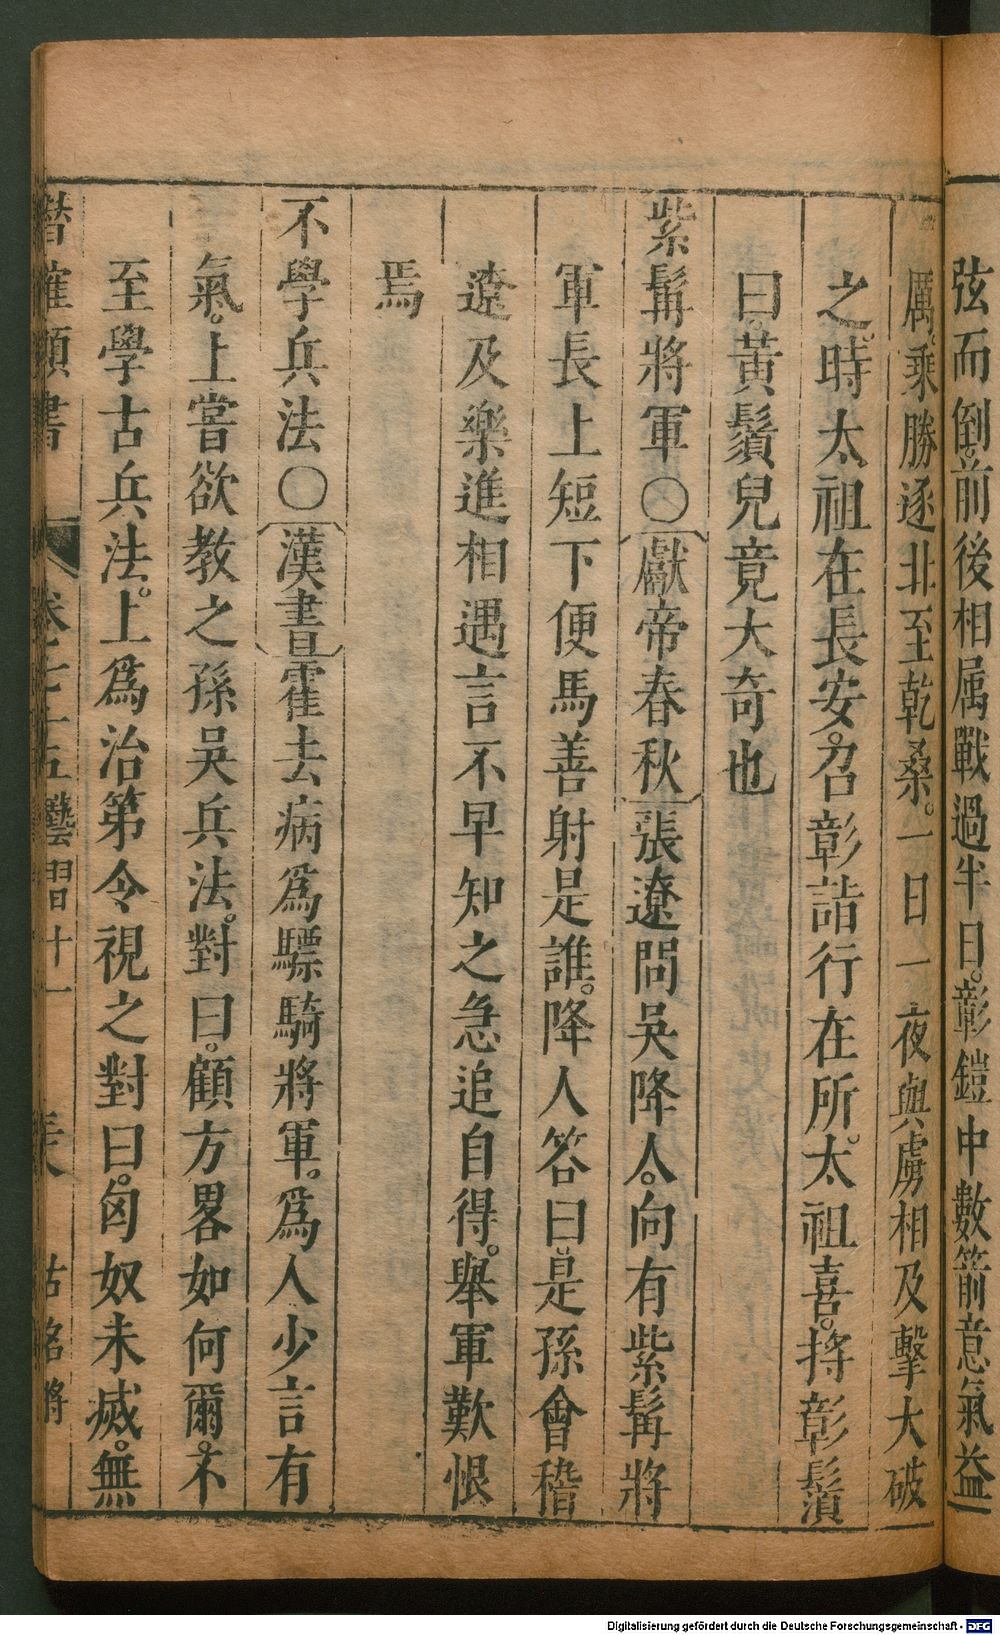 弦而倒。前後相属戰過半日。彰鎧中數箭意氣益
厲。乗勝逐北至乾桑。一日一夜與虜相及擊大破
之。時太祖在長安。召彰詣行在所。太祖喜。捋彰鬚
曰。黃鬚兒竟大奇也
紫髯將軍○獻帝春秋張遼問吳降人。向有紫髯將
軍長上短下便馬善射是誰。降人答曰。是孫會稽
遼及樂進相遇言不早知之急追自得。舉軍歎恨
焉
不學兵法○漢書霍去病爲驃騎將軍。爲人少言有
氣。上嘗欲教之孫吳兵法。對曰。顧方畧如何爾。不
至學古兵法。上爲治第令視之對曰。匈奴未滅。無
潛確類書 卷七十五藝習十一 古名將
Digitalisierung gefördert durch die Deutsche Forschungsgemeinschaft - DFG